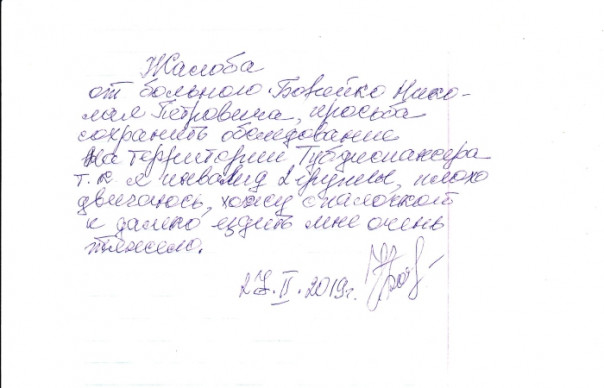 Жалоба
от больного Бовейко Нико-
лая Петровича, просьба
сохранить обследование
на территории Тубдиспансера
т.к я инвалид 2 группы, плохо
двигаюсь, хожу с палочкой
и далеко ездить мне очень
тяжело.
27.II.2019г.